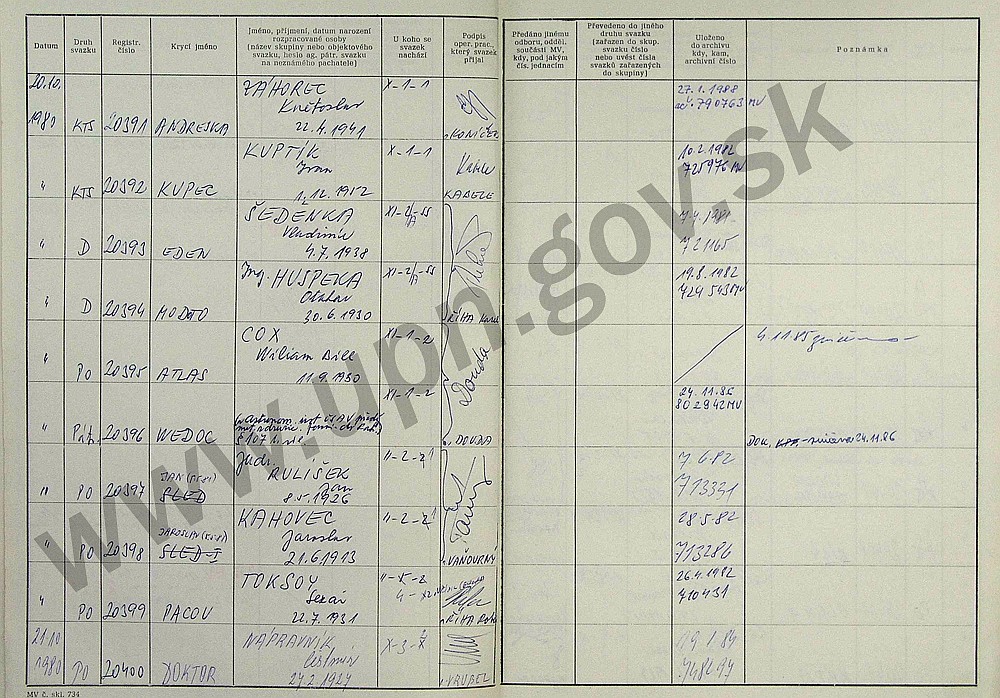 Datum
Druh svazku
Registr. číslo
Krycí jméno
Jméno, příjmení, datum narození
rozpracované osoby
(název skupiny nebo objektového
svazku, heslo ag. pátr. svazku
na neznámého pachatele)
U koho se
svazek
nachází
Podpis
oper. prac.,
který svazek
přijal
Předáno jinému
odboru, odděl.
součásti MV,
kdy, pod jakým
čís. jednacím
Převedeno do jiného
druhu svazku
(zařazen do skup.
svazku číslo
nebo uvést čísla
svazků zařazených
do skupiny)
Uloženo
do archivu
kdy, kam,
archivní číslo
Poznámka
20.10. ZÁHOREC X-1-1 27.1.1988
Květoslav 790763 MV
1980 KTS 20391 ANDREJKA 22.4.1941 KONÍČEK
KUPTÍK X-1-1 10.2.1982
Ivan Kabele 725976 MV
" KTS 20392 KUPEC 12.1952 KABELE
ŠEDENKA
Vladimír
" D 20393 EDEN 4.7.1938 721165
Ing. HUSPEKA 19.8.1982
Otakar 729543 MV
" D 20394 30.6.1930 ŘÍHA Karel
COX XI-1-2 4.11.85
William Bill
" PO 20395 ATLAS 11.9.1930 Douda
XI-1-2 24.11.86
802942 MV
" Pátr. 20396 WEDOC DOUDA 24.11.86
Judr. 7.6.82
RULIŠEK
JAN Jan
" PO 20397 SLED 8.5.1926 713331
KAHOVEC 28.5.82
JAROSLAV Jaroslav
" PO 20398 SLED-I 21.6.1913 VAŇOURNÝ 713286
TOKSOY 26.4.1982
Sezai 710431
" PO 20399 PACOV 22.7.1931 ŘÍHA
21.10. NÁPRAVNÍK
Čestmír
1980 PO 20400 DOKTOR 27.2.1927 VRUBEL
MV č. skl. 734
www.upn.gov.sk